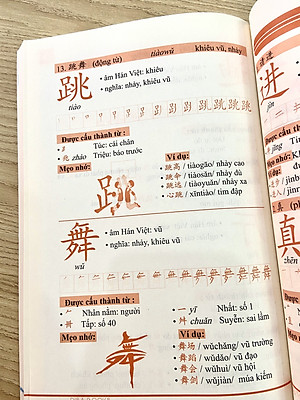 13. 跳舞 (động từ) tiàowǔ khiêu vũ, nhảy
跳
tiào
• âm Hán Việt: khiêu
• nghĩa: nhảy, khiêu vũ
Được cấu thành từ:
Túc: cái chân
• 兆 zhào Triệu: báo trước
Mẹo nhớ:
Ví dụ:
• 跳高 / tiàogāo/ nhảy cao
• 跳伞 / tiàosǎn/ nhảy dù
• 跳远 / tiàoyuǎn/ nhảy xa
• 心跳 / xīntiào/ tim đập
舞
wǔ
• âm Hán Việt: vũ
• nghĩa: nhảy, khiêu vũ
Được cấu thành từ :
• 𠂉 Nhân nằm: người
• 卌 Tấp: số 40
• 一 yī Nhất: số 1
• 舛 chuǎn Suyễn: sai lầm
Mẹo nhớ:
Ví dụ:
• 舞场 / wǔchǎng/ vũ trường
• 舞蹈 / wǔdǎo/ vũ đạo
• 舞会 / wǔhuì/ vũ hội
• 舞剑 / wǔjiàn/ múa kiếm
进
jìn
zhēn